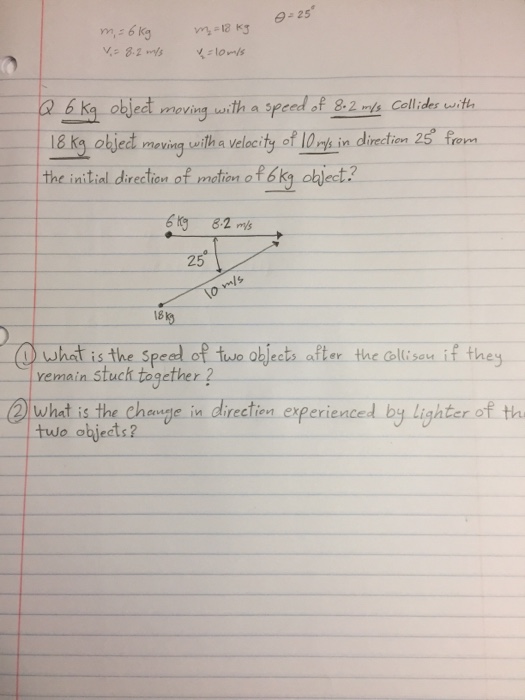 m₁=6 kg m₂=18 kg θ=25°
V₁= 8.2 m/s V₂=10m/s
Q 6 kg object moving with a speed of 8.2 m/s Collides with
18 kg object moving with a velocity of 10 m/s in direction 25° from
the initial direction of motion of 6kg object?
6 kg 8.2 m/s
25°
10 m/s
18 kg
① What is the speed of two objects after the collison if they
remain stuck together?
② What is the change in direction experienced by Lighter of th
two objects?